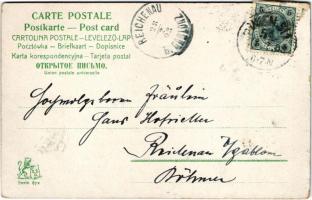 CARTE POSTALE
Postkarte — Post card
CARTOLINA POSTALE — LEVELEZŐ-LAP
Pocztówka — Briefkaart — Dopisnice
Karta korespondencyjna — Tarjeta postal
ОТКРЫТОЕ ПИСЬМО.
Union postale universelle
REICHENAU
Hochwolgeboren Fräulein
Hans Hofrieller
Reichenau b/Gablonz
Böhmen